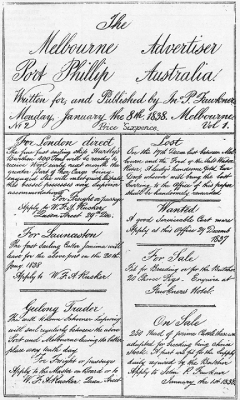 The
Melbourne Advertiser
Port Phillip Australia
Written for, and Published by Jn. P. Fawkner
Monday, January the 8th, 1838. Melbourne
No 2 Price Sixpence. Vol 1.
For London direct
The fine fast sailing ship
300 Tons will be ready to
receive Wool early next month the
greater part of her Cargo being
engaged
this vessel possesses very superior
accommodations
For Freight or passage
Apply to W. F. A. Rucker
Queen Street 29th Dec.
For Launceston
The fast sailing Cutter Jemima will
sail for the above port on the 20th
Jany 1838
Apply to W. F. A. Rucker
Geelong Trader
The well known Schooner
will sail regularly between the above
Port and Melbourne leaving the latter
place every tenth day
For Freight or passage
Apply to the Master on Board or to
W. F. A. Rucker Queen Street
Lost
On the 19th Decr between Mel-
bourne and the Ford of the Salt Water
River, A Lady's handsome
cloak whoever will bring the
to the Office of this paper
shall be handsomely rewarded
Wanted
A good Serviceable Cart mare
Apply at this Office 29 Decemr
1837
For Sale
Fit for Breeding or for the Butcher
20 Prime Pigs. Enquire at
Fawkner's Hotel.
On Sale
250 Head of prime Cattle
adapted for breeding being choice
stock. If not sold
daily required by the
Apply to John P. Fawkner
January the 1st 1838